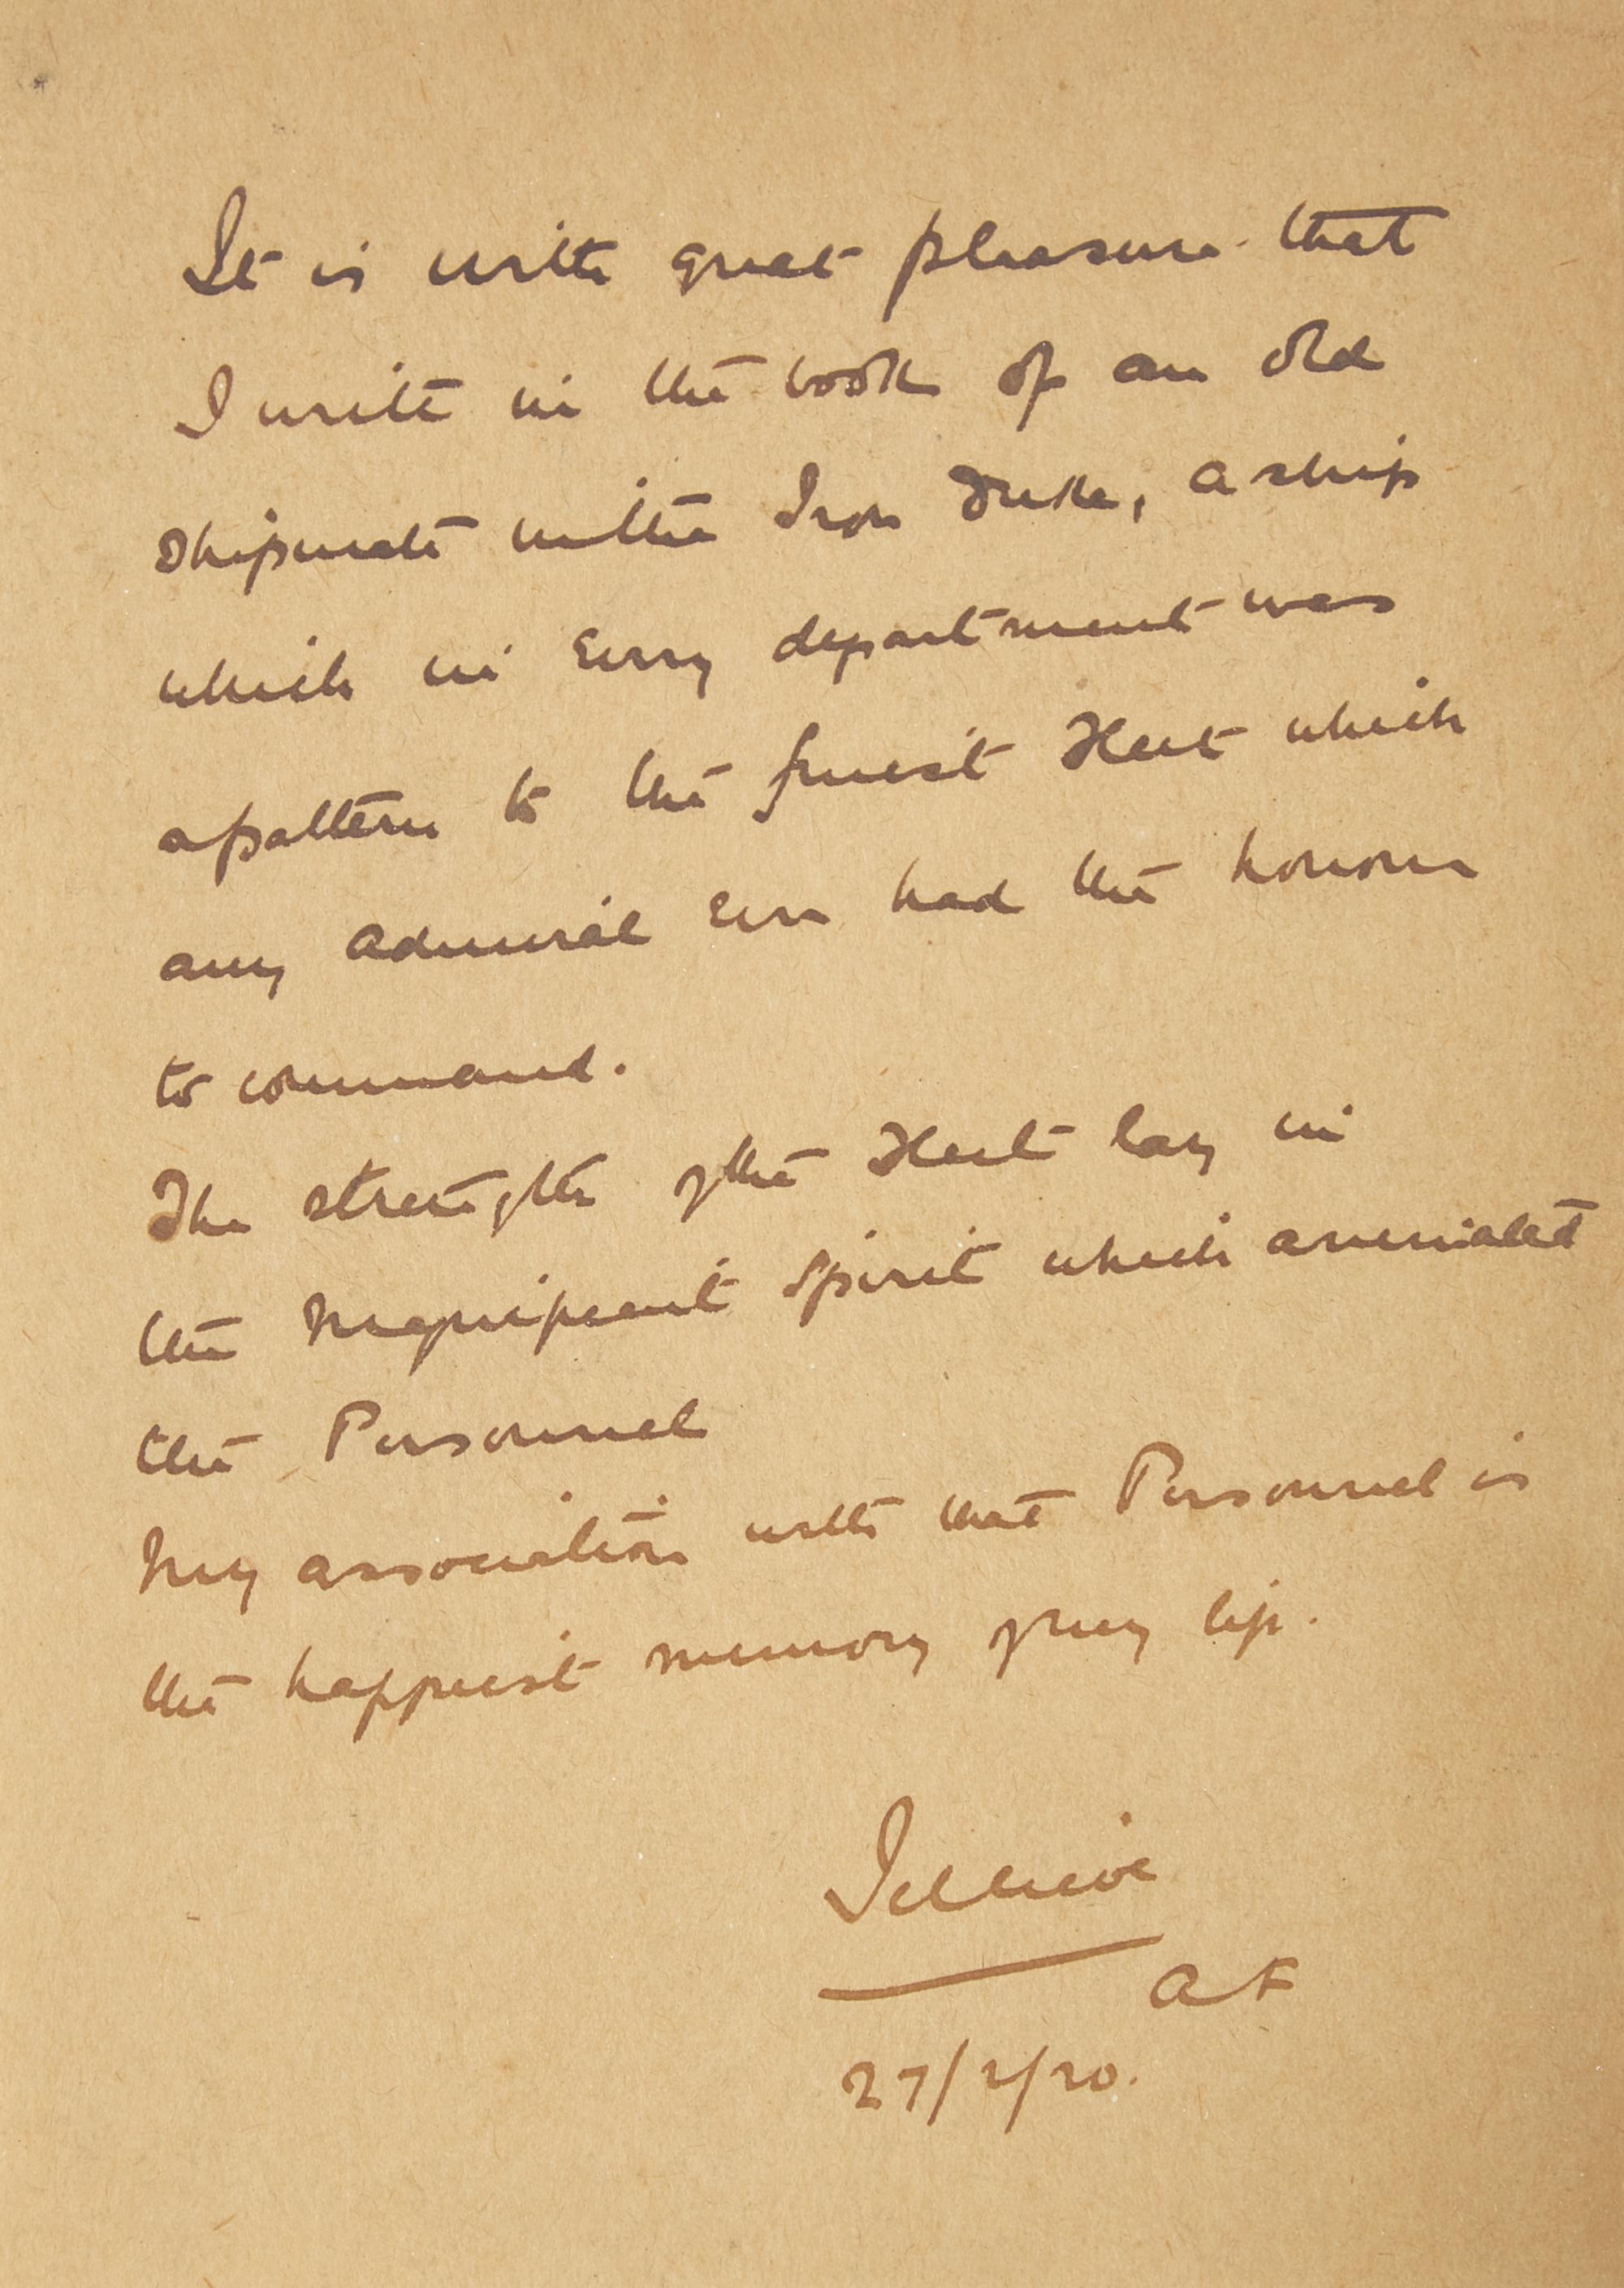 It is with great pleasure that
I write in the book of an old
shipmate in the Iron Duke, a ship
which in every department was
a pattern to the finest Fleet which
any Admiral ever had the honour
to command.
The strength of the Fleet lay in
the magnificent spirit which animated
the Personnel
My association with that Personnel is
the happiest memory of my life.
Jellicoe
AF
27/2/20.